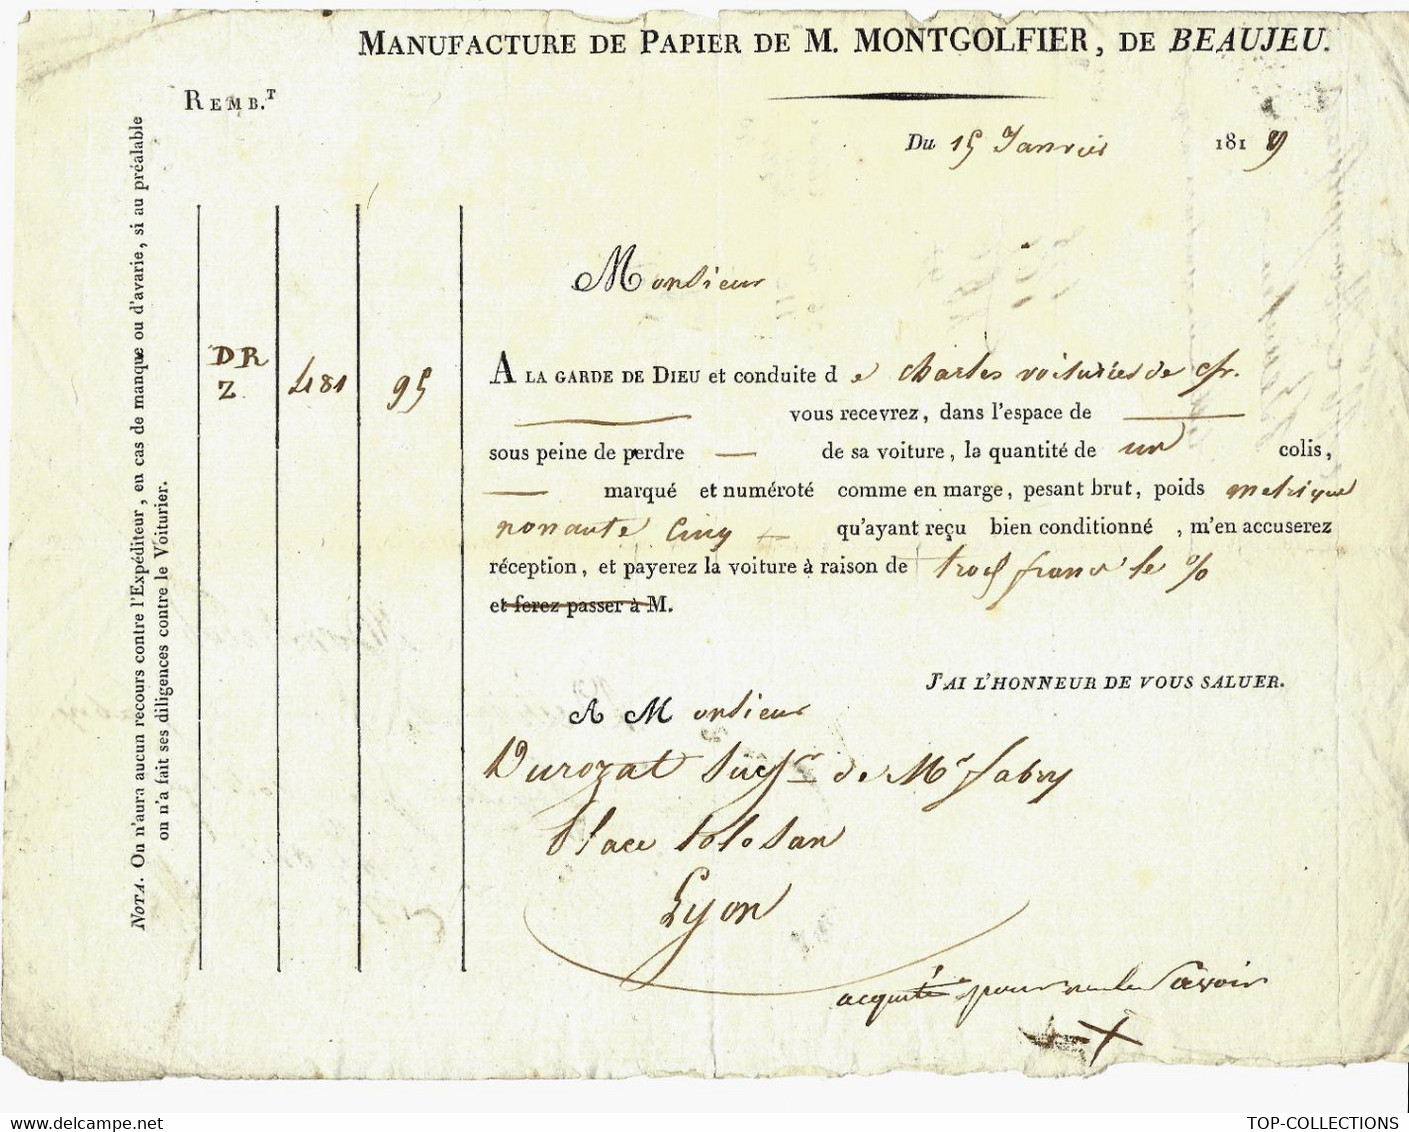 MANUFACTURE DE PAPIER DE M. MONTGOLFIER, DE BEAUJEU.
REMB.T
Du 15 Janvier 1819
Monsieur
DR
Z
481
95
A LA GARDE DE DIEU et conduite de Charles voiturier de
vous recevrez, dans l'espace de
sous peine de perdre — de sa voiture, la quantité de un colis,
— marqué et numéroté comme en marge, pesant brut, poids metrique
nonante Cinq — qu'ayant reçu bien conditionné, m'en accuserez
réception, et payerez la voiture à raison de trois francs le %
et ferez passer à M.
J'AI L'HONNEUR DE VOUS SALUER.
A Monsieur
Durozat Sucsr de Mr Fabry
Place tolosan
Lyon
acquité pour ne le Savoir
NOTA. On n'aura aucun recours contre l'Expéditeur, en cas de manque ou d'avarie, si au préalable
on n'a fait ses diligences contre le Voiturier.
TOP-COLLECTIONS